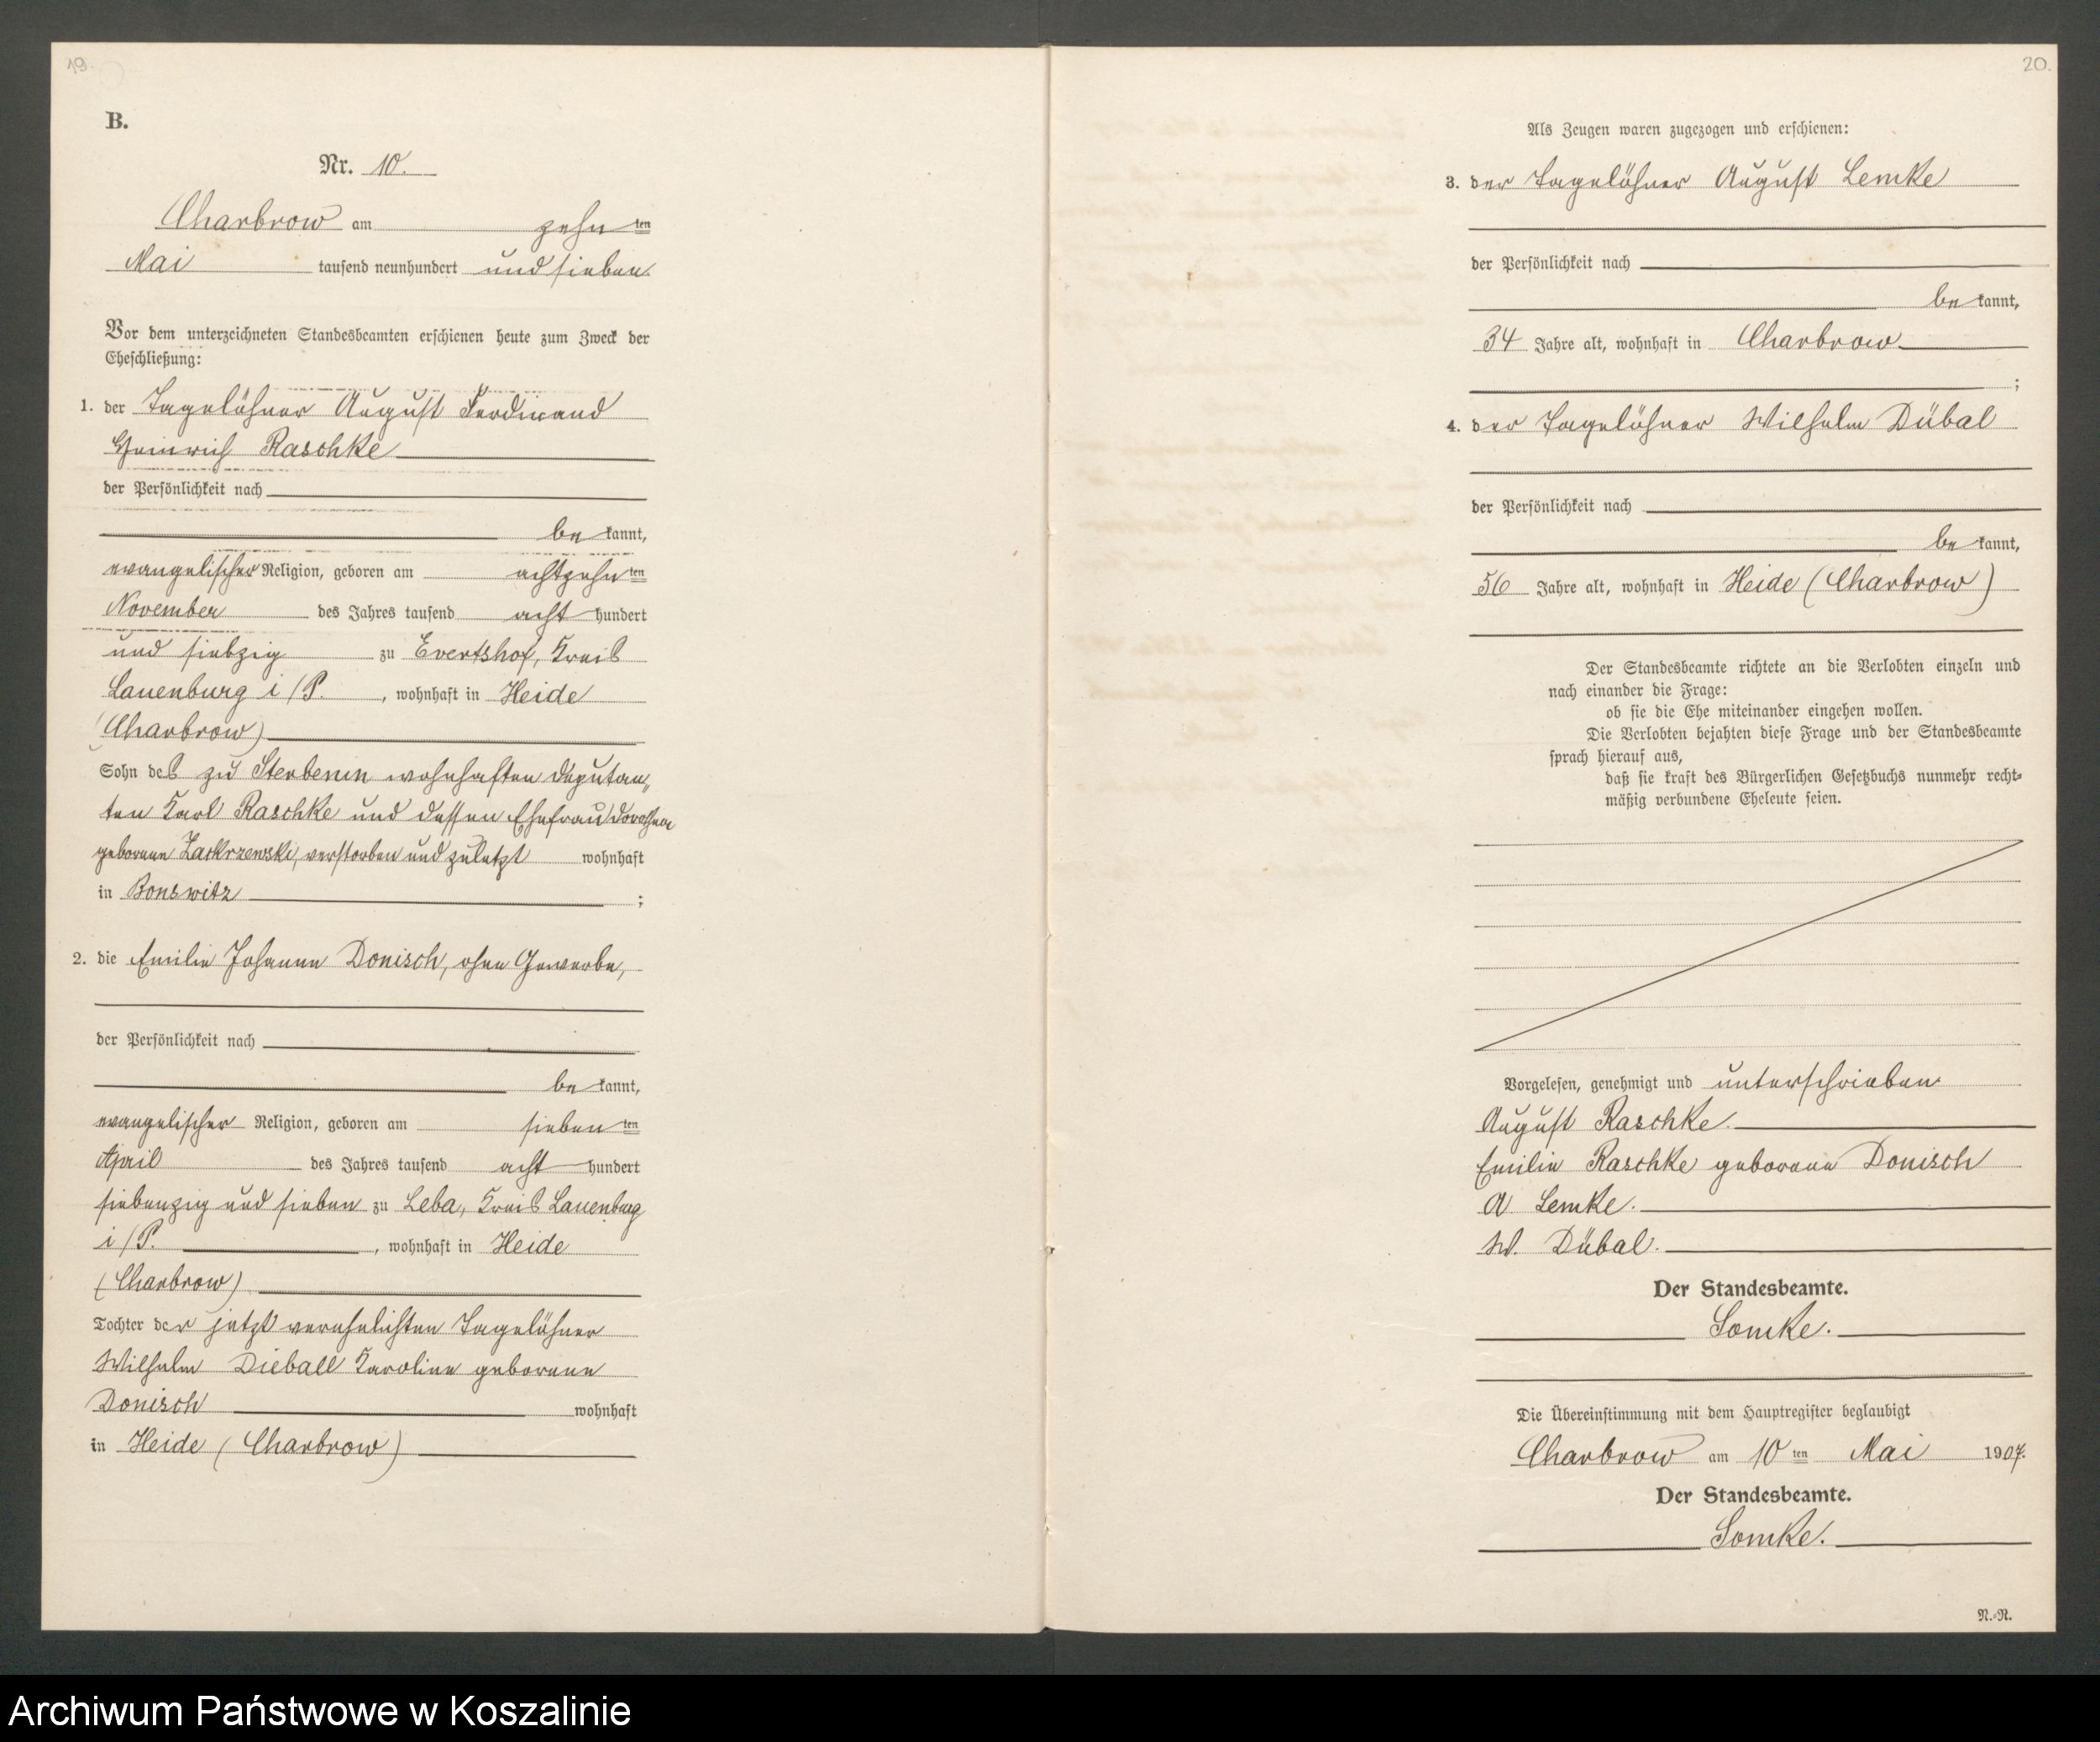 19.
B.
Nr. 10.
Charbrow am zehnten
Mai tausend neunhundert und sieben.
Vor dem unterzeichneten Standesbeamten erschienen heute zum Zweck der
Eheschließung:
1. der Tagelöhner August Ferdinand
Heinrich Raschke
der Persönlichkeit nach
be kannt,
evangelischer Religion, geboren am achtzehnten
November des Jahres tausend acht hundert
und siebzig zu Evertshof, Kreis
Lauenburg i/P., wohnhaft in Heide
(Charbrow)
Sohn des zu Sterbenin wohnhaften Deputan„
ten Karl Raschke und dessen Ehefrau Dorothea
geborene Zackrzewski, verstorben und zuletzt wohnhaft
in Bonswitz ;
2. die Emilie Johanne Donisch, ohne Gewerbe,
der Persönlichkeit nach
be kannt,
evangelischer Religion, geboren am siebenten
April des Jahres tausend acht hundert
siebenzig und sieben zu Leba, Kreis Lauenburg
i/P. , wohnhaft in Heide
(Charbrow)
Tochter der jetzt verehelichten Tagelöhner
Wilhelm Dieball Karoline geborene
Donisch wohnhaft
in Heide (Charbrow)
20.
Als Zeugen waren zugezogen und erschienen:
3. der Tagelöhner August Lemke
der Persönlichkeit nach
be kannt,
34 Jahre alt, wohnhaft in Charbrow
;
4. der Tagelöhner Wilhelm Dübal
der Persönlichkeit nach
be kannt,
56 Jahre alt, wohnhaft in Heide (Charbrow)
Der Standesbeamte richtete an die Verlobten einzeln und
nach einander die Frage:
ob sie die Ehe miteinander eingehen wollen.
Die Verlobten bejahten diese Frage und der Standesbeamte
sprach hierauf aus,
daß sie kraft des Bürgerlichen Gesetzbuchs nunmehr recht-
mäßig verbundene Eheleute seien.
Vorgelesen, genehmigt und unterschrieben.
August Raschke.
Emilie Raschke geborene Donisch
A Lemke.
W. Dübal.
Der Standesbeamte.
Somke.
Die Übereinstimmung mit dem Hauptregister beglaubigt
Charbrow am 10ten Mai 1907.
Der Standesbeamte.
Somke.
N.-R.
Archiwum Państwowe w Koszalinie